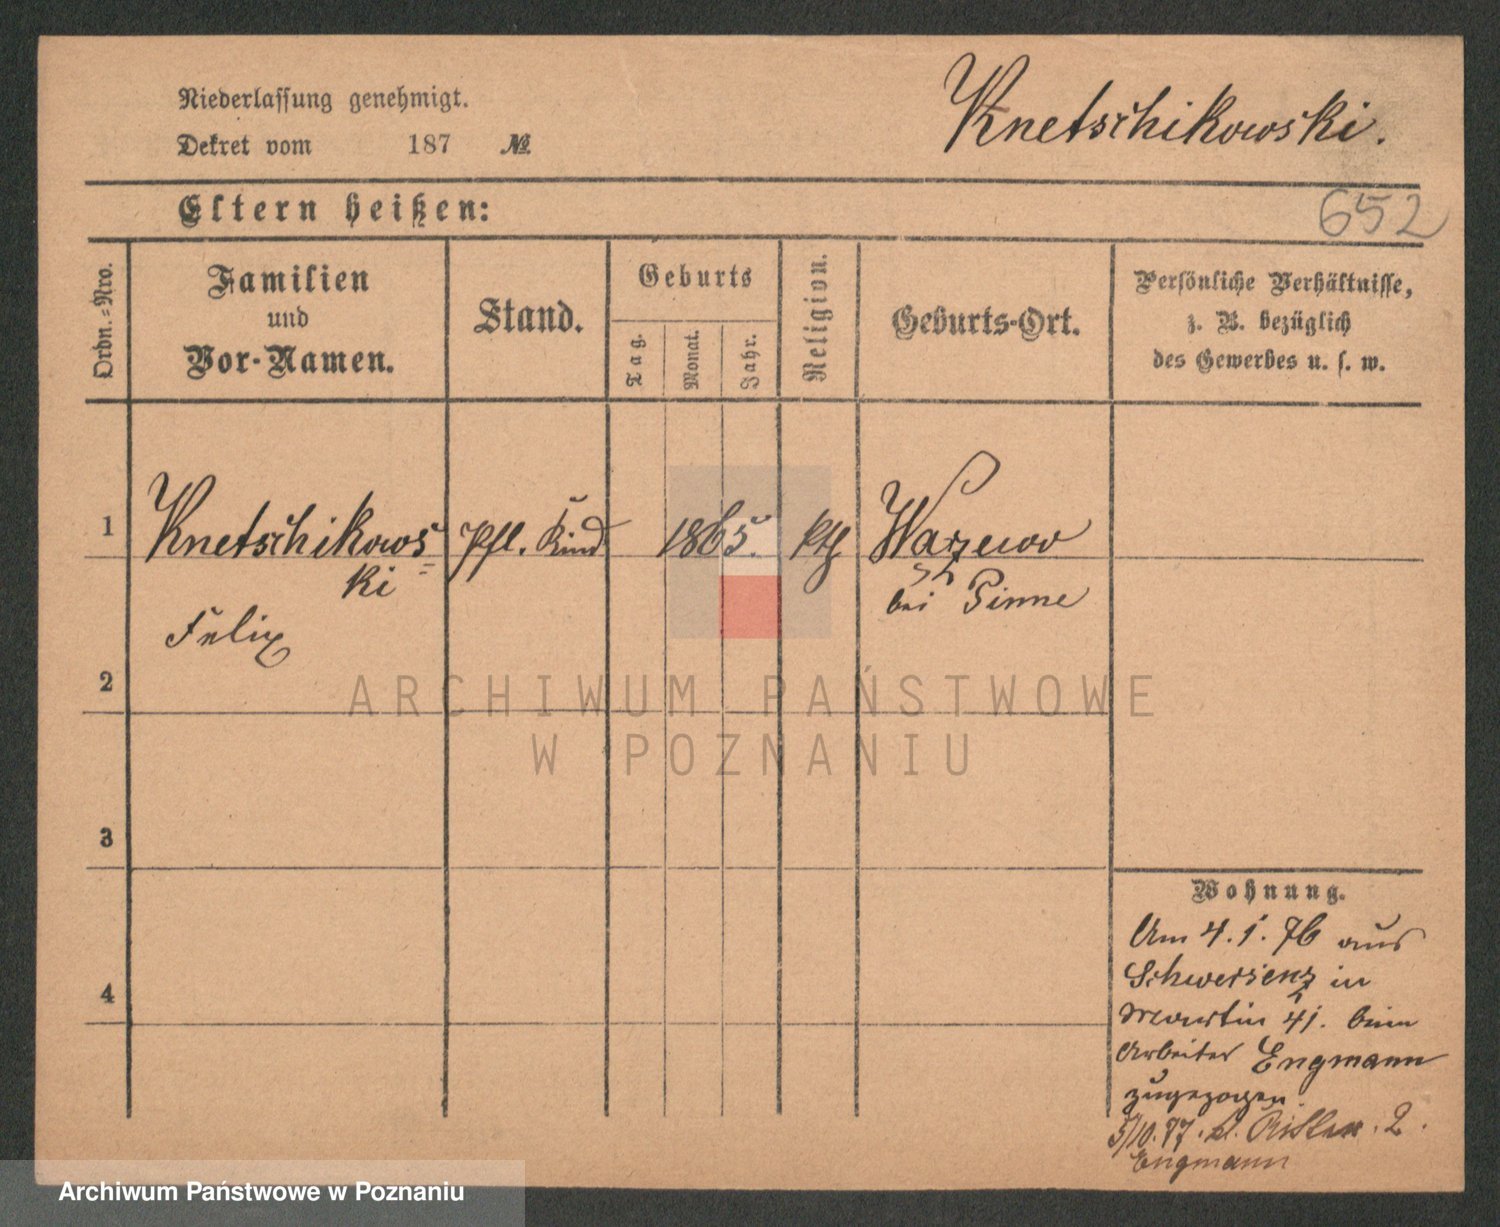 Niederlassung genehmigt.
Dekret vom 187 №
Knetschikowski.
Eltern heißen:
652
Ordn.=Nro.
Familien
und
Vor-Namen.
Stand.
Geburts
Tag.
Monat.
Jahr.
Religion.
Geburts-Ort.
Persönliche Verhältnisse,
z. B. bezüglich
des Gewerbes u. s. w.
1 Knetschikows= Pfl. Kind 1865. kth
ki
bei Pinne
Felix
2
ARCHIWUM PAŃSTWOWE
W POZNANIU
3
Wohnung.
Am 4.1.76 aus
Schwersenz in
Martin 41. beim
Arbeiter Engmann
zugezogen.
4
5/10.77. kl. 2.
Engmann
Archiwum Państwowe w Poznaniu